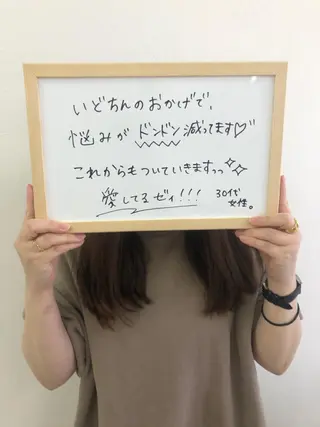 いどちんのおかげで、
悩みがドンドン減ってます♡
これからもついていきますっっ✨
愛してるゼィ!!!
30代
女性。